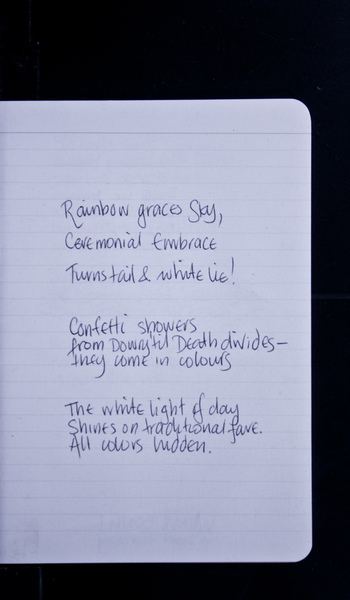 Rainbow graces Sky,
Ceremonial Embrace
Turns tail & white lie!
Confetti showers
from Downy til Death divides—
They come in colours
The white light of day
Shines on traditional fare.
All colors hidden.